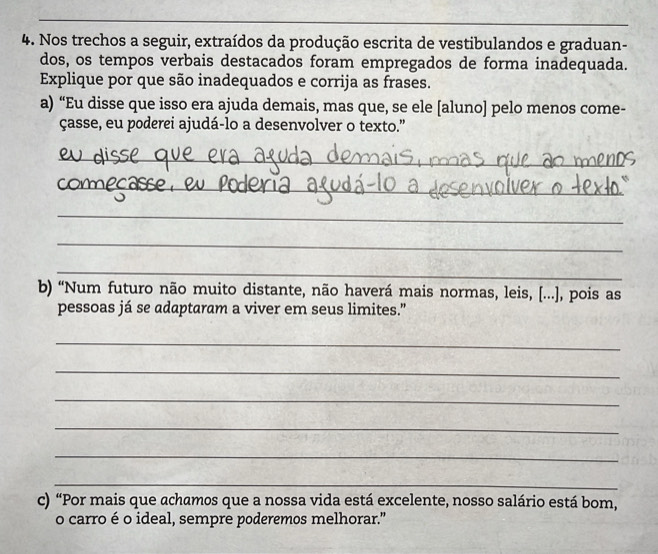 4. Nos trechos a seguir, extraídos da produção escrita de vestibulandos e graduan-
dos, os tempos verbais destacados foram empregados de forma inadequada.
Explique por que são inadequados e corrija as frases.
a) “Eu disse que isso era ajuda demais, mas que, se ele [aluno] pelo menos come-
çasse, eu poderei ajudá-lo a desenvolver o texto.”
eu disse que era ajuda demais, mas que ao menos
começasse, eu poderia ajudá-lo a desenvolver o texto.”
b) “Num futuro não muito distante, não haverá mais normas, leis, [...], pois as
pessoas já se adaptaram a viver em seus limites.”
c) “Por mais que achamos que a nossa vida está excelente, nosso salário está bom,
o carro é o ideal, sempre poderemos melhorar.”